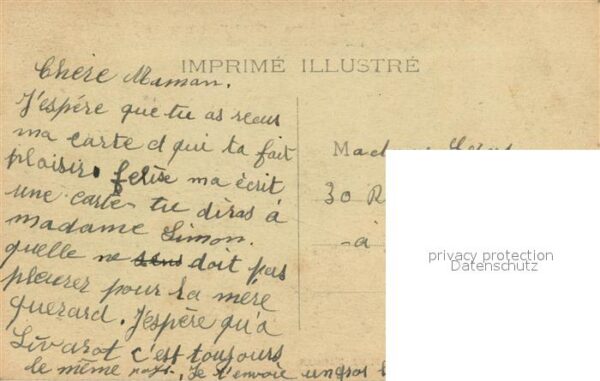 IMPRIMÉ ILLUSTRÉ
Chère Maman.
J'espére que tu as recus
ma carte d qui ta fait
plaisir. felise ma écrit
une carte tu diras á
madame Simon.
quelle ne sens doit pas
pleurer pour la mére
Guerard. J'espère qu'a
Livarot c'est toujours
le même Je t'envoie un gros
30 R
à
privacy protection
Datenschutz